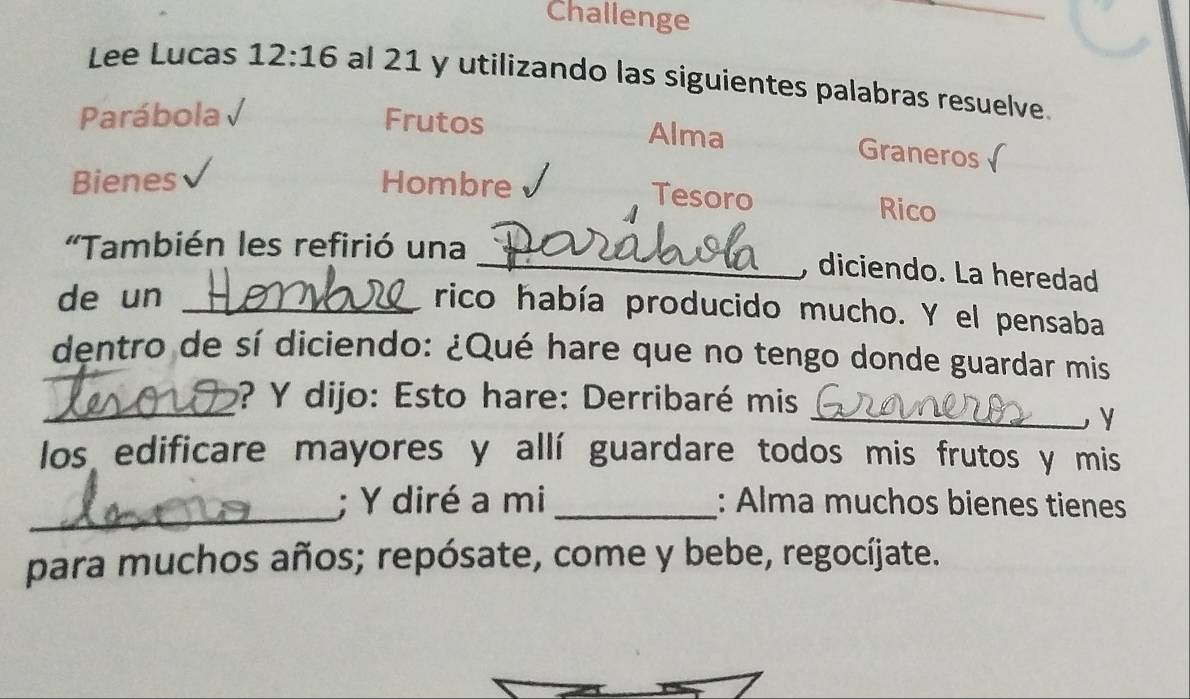 Challenge
Lee Lucas 12:16 al 21 y utilizando las siguientes palabras resuelve.
Parábola √ Frutos Alma Graneros √
Bienes √ Hombre √ Tesoro Rico
“También les refirió una Parábola, diciendo. La heredad
de un Hombre rico había producido mucho. Y el pensaba
dentro de sí diciendo: ¿Qué hare que no tengo donde guardar mis
tesoros? Y dijo: Esto hare: Derribaré mis Graneros, y
los edificare mayores y allí guardare todos mis frutos y mis
; Y diré a mi ________: Alma muchos bienes tienes
para muchos años; repósate, come y bebe, regocíjate.